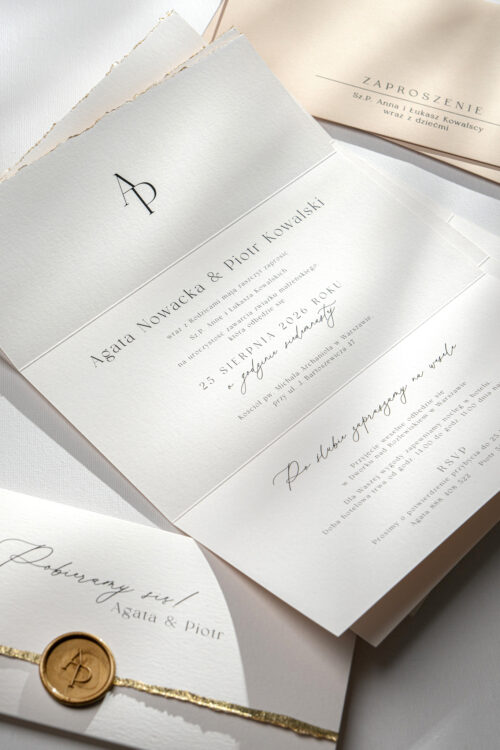 ZAPROSZENIE
Sz.P. Anna i Łukasz Kowalscy
wraz z dziećmi
AP
Agata Nowacka & Piotr Kowalski
wraz z Rodzicami mają zaszczyt zaprosić
Sz.P. Annę i Łukasza Kowalskich
na uroczystość zawarcia związku małżeńskiego,
która odbędzie się
23 SIERPNIA 2026 ROKU
o godzinie siedemnastej
Kościół pw. Michała Archanioła w Warszawie
przy ul. J. Bartoszewicza 17
Po ślubie zapraszamy na wesele
Przyjęcie weselne odbędzie się
w Dworku nad Rozlewiskiem w Warszawie
Dla Waszej wygody zapewniamy nocleg w hotelu
Doba hotelowa trwa od godz. 14:00 do godz. 11:00
RSVP
Prosimy o potwierdzenie przybycia do 25
Agata 888 408 522 Piotr
Pobieramy się!
Agata & Piotr
AP